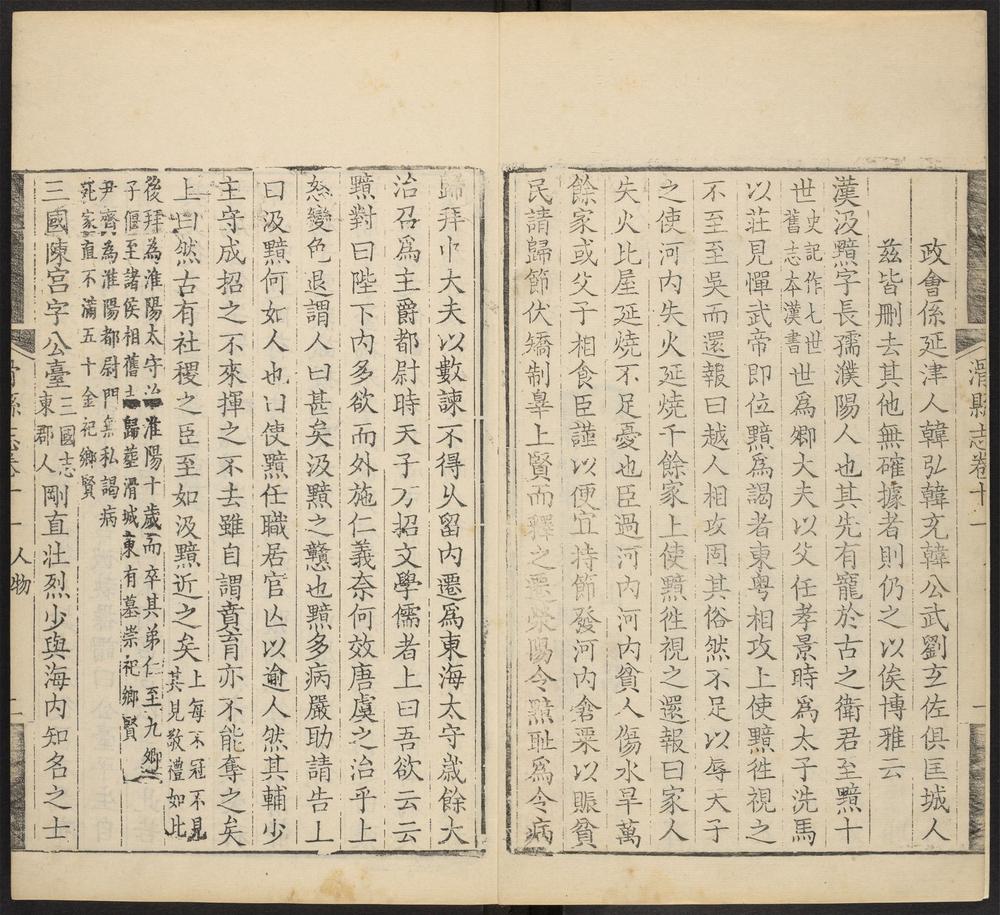 政會係延津人韓弘韓充韓公武劉玄佐俱匡城人
茲皆刪去其他無確據者則仍之以俟博雅云
漢汲黯字長孺濮陽人也其先有寵於古之衛君至黯十
世史記作七世舊志本漢書世為卿大夫以父任孝景時為太子洗馬
以莊見憚武帝即位黯為謁者東粵相攻上使黯徃視之
不至至吳而還報曰越人相攻固其俗然不足以辱天子
之使河内失火延燒千餘家上使黯徃視之還報曰家人
失火比屋延燒不足憂也臣過河内河内貧人傷水旱萬
餘家或父子相食臣謹以便宜持節發河内倉粟以賑貧
民請歸節伏矯制辠上賢而釋之遷滎陽令黯耻為令病
滑縣志卷十
一
歸拜中大夫以數諫不得乆留内遷為東海太守歲餘大
治召為主爵都尉時天子方招文學儒者上曰吾欲云云
黯對曰陛下内多欲而外施仁義奈何效唐虞之治乎上
怒變色退謂人曰甚矣汲黯之戇也黯多病嚴助請告上
曰汲黯何如人也曰使黯任職居官亾以逾人然其輔少
主守成招之不來揮之不去雖自謂賁育亦不能奪之矣
上曰然古有社稷之臣至如汲黯近之矣上每不冠不見其見敬禮如此
後拜為淮陽太守治淮陽十歲而卒其弟仁至九卿
子偃至諸侯相舊志歸塟滑城東有墓崇祀鄉賢
尹齊為淮陽都尉門無私謁病
死家直不滿五十金祀鄉賢
三國陳宮字公臺三國志東郡人剛直壯烈少與海内知名之士
滑縣志卷十
人物
二